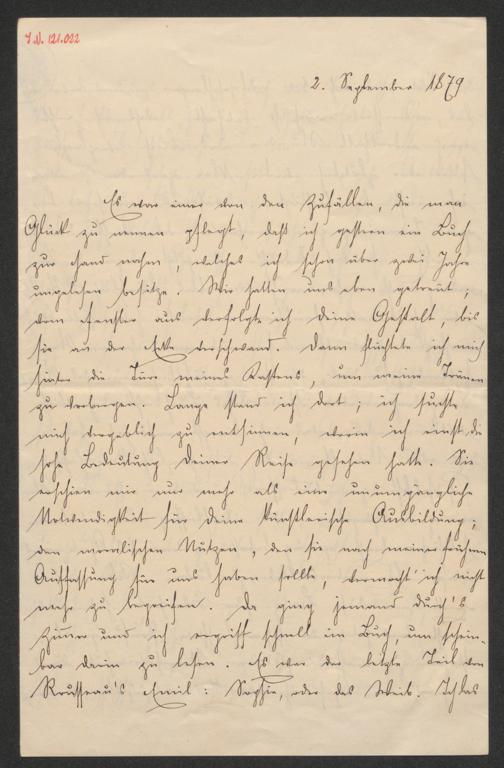 I.N. 121.022
2. September 1879
Es war einer von den Zufällen, die man
Glück zu nennen pflegt, daß ich gestern ein Buch
zur Hand nahm, welches ich schon über zwei Jahre
ungelesen besitze. Wir hatten uns eben getrennt;
vom Fenster aus verfolgte ich Deine Gestalt, bis
sie an der Ecke verschwand. Dann flüchtete ich mich
hinter die Türe meines Kastens, um meine Tränen
zu verbergen. Lange stand ich dort; ich suchte
mich vergeblich zu entsinnen, worin ich einst die
hohe Bedeutung Deiner Reise gesehen hatte. Sie
erschien mir nur mehr als eine unumgängliche
Notwendigkeit für Deine künstlerische Ausbildung;
den moralischen Nutzen, den sie nach meiner frühern
Auffassung für uns haben sollte, vermocht' ich nicht
mehr zu begreifen. Da ging jemand durch's
Zimer und ich ergriff schnell ein Buch, um schein-
bar darin zu lesen. Es war der letzte Teil von
Rousseau's Emil: Sophie, oder das Weib. Ich las